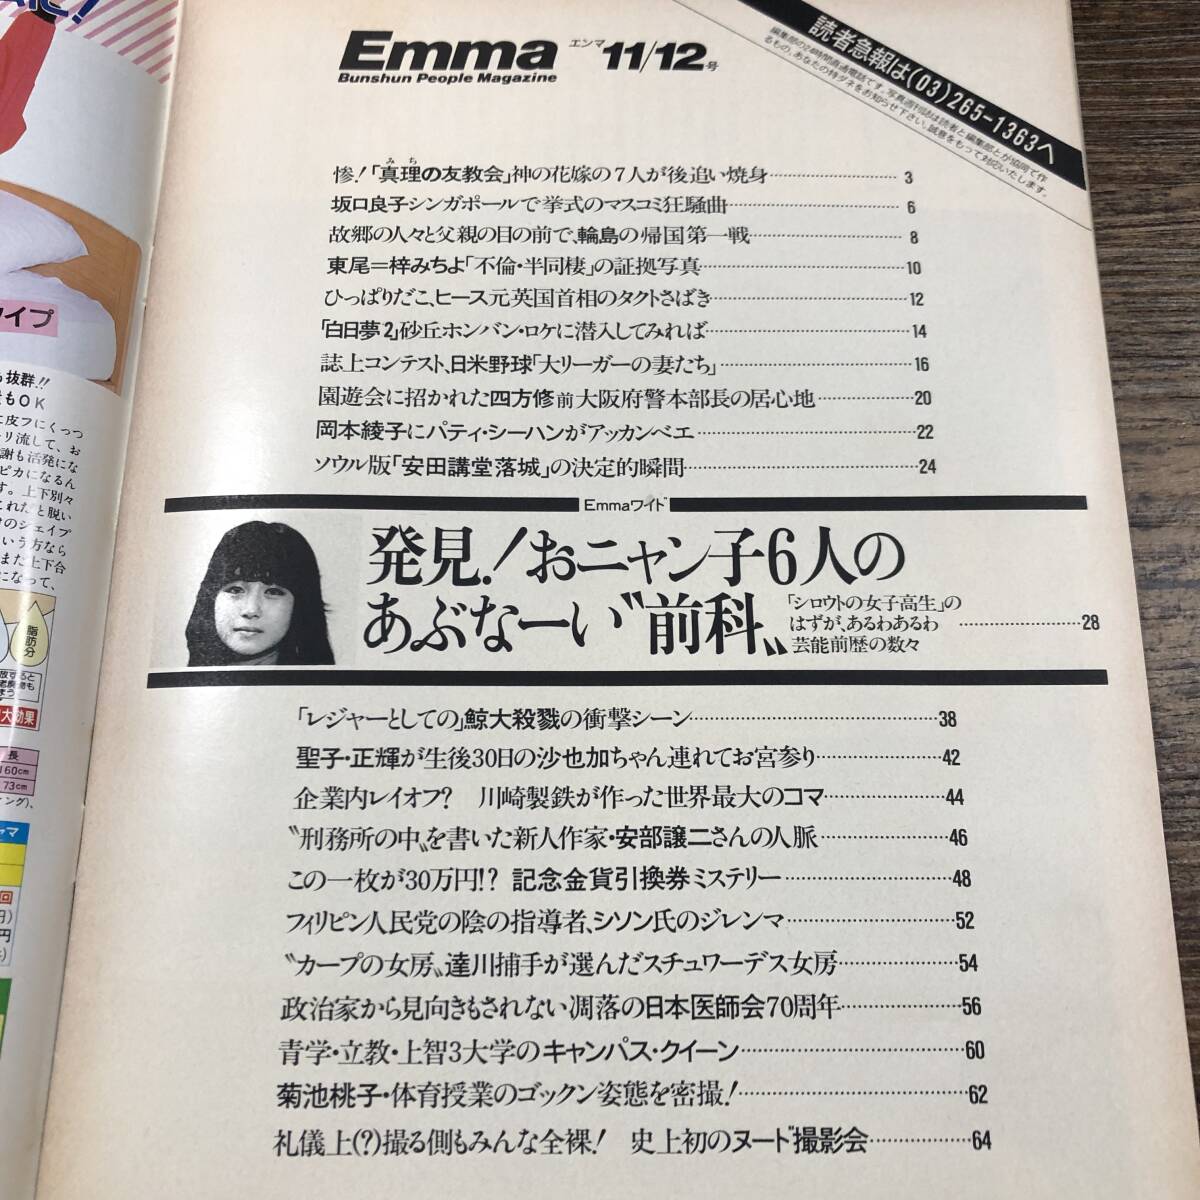 Emma エンマ 11/12号
Bunshun People Magazine
読者急報は(03)265-1363へ
編集部の24時間直通電話です。写真週刊誌は読者と編集部とが協同で作
るもの。あなたの特ダネをお知らせ下さい。誠意をもって対応いたします。
惨!「真理の友教会」神の花嫁の7人が後追い焼身 3
みち
坂口良子シンガポールで挙式のマスコミ狂騒曲 6
故郷の人々と父親の目の前で、輪島の帰国第一戦 8
東尾=梓みちよ「不倫・半同棲」の証拠写真 10
ひっぱりだこ、ヒース元英国首相のタクトさばき 12
「白日夢2」砂丘ホンバン・ロケに潜入してみれば 14
誌上コンテスト、日米野球「大リーガーの妻たち」 16
園遊会に招かれた四方修前大阪府警本部長の居心地 20
岡本綾子にパティ・シーハンがアッカンベエ 22
ソウル版「安田講堂落城」の決定的瞬間 24
Emmaワイド
発見!おニャン子6人の
あぶなーい〝前科〟
「シロウトの女子高生」の
はずが、あるわあるわ
芸能前歴の数々 28
「レジャーとしての」鯨大殺戮の衝撃シーン 38
聖子・正輝が生後30日の沙也加ちゃん連れてお宮参り 42
企業内レイオフ? 川崎製鉄が作った世界最大のコマ 44
〝刑務所の中〟を書いた新人作家・安部譲二さんの人脈 46
この一枚が30万円!? 記念金貨引換券ミステリー 48
フィリピン人民党の陰の指導者、シソン氏のジレンマ 52
〝カープの女房〟達川捕手が選んだスチュワーデス女房 54
政治家から見向きもされない凋落の日本医師会70周年 56
青学・立教・上智3大学のキャンパス・クイーン 60
菊池桃子・体育授業のゴックン姿態を密撮! 62
礼儀上(?)撮る側もみんな全裸! 史上初のヌード撮影会 64
イプ
抜群!!
もOK
皮フにくっつ
リ流して、お
謝も活発にな
ピカになるん
す。上下別々
これだと脱い
のシェイプ
いう方なら
また上下合
になって、
脂肪分
大効果
長
160cm
73cm
ング)、
ャマ
回
円)
円